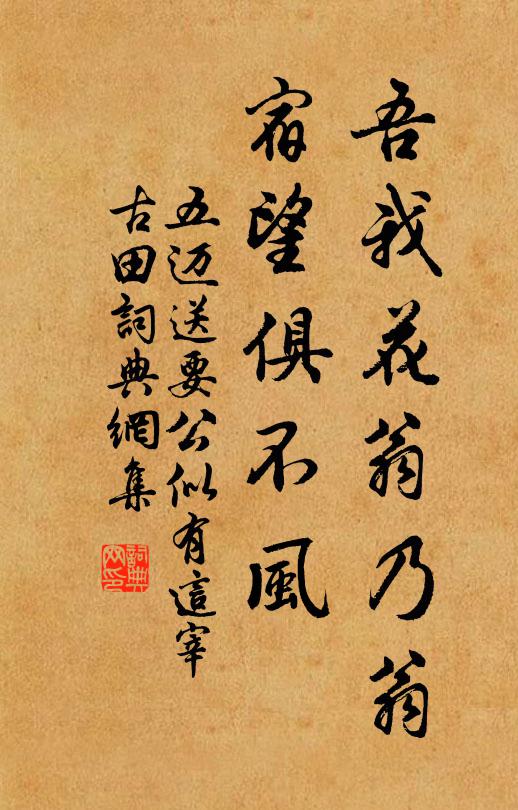 吾我花翁乃翁
宿望俱不風
五迈送要公似有這宰
古田詞典網集
詞典網印